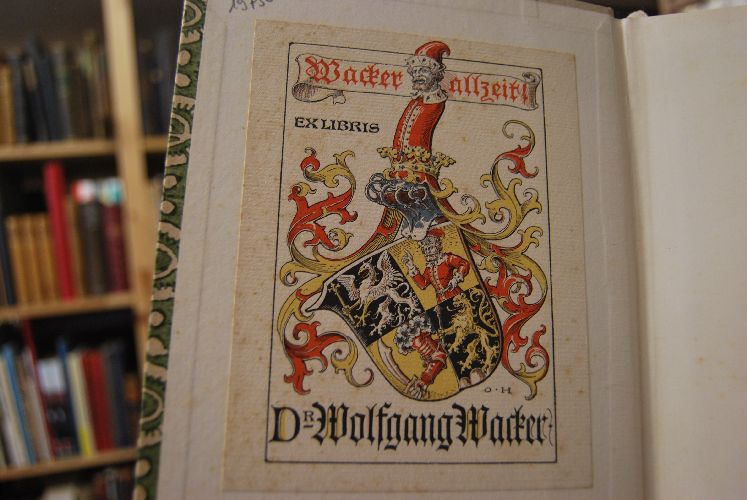 Wacker allzeit!
EX LIBRIS
O·H
DR Wolfgang Wacker